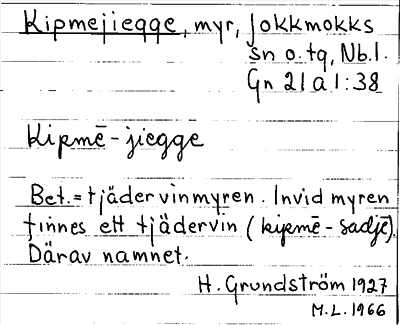 Kipmejiegge, myr, Jokkmokks
sn o. tg, Nb.l.
Gn 21 a 1:38
kipmē-jiegge
Bet. = tjädervinmyren. Invid myren
finnes ett tjädervin (kipmē-sadjē).
Därav namnet.
H. Grundström 1927
M.L. 1966